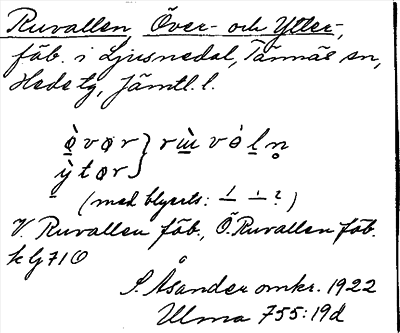 Ruvallen, Över- och Ytter-,
fäb. i Ljusnedal, Tännäs sn,
Hede tg, Jämtl. l.
ø̀vør } rɯ̀vȯln̥
ỳtør
(med blyerts: ⊥ ⊥ ?)
V. Ruvallen fäb., Ö. Ruvallen fäb.
k lj 71 O
S. Åsander omkr. 1922
Ulma 755:19d